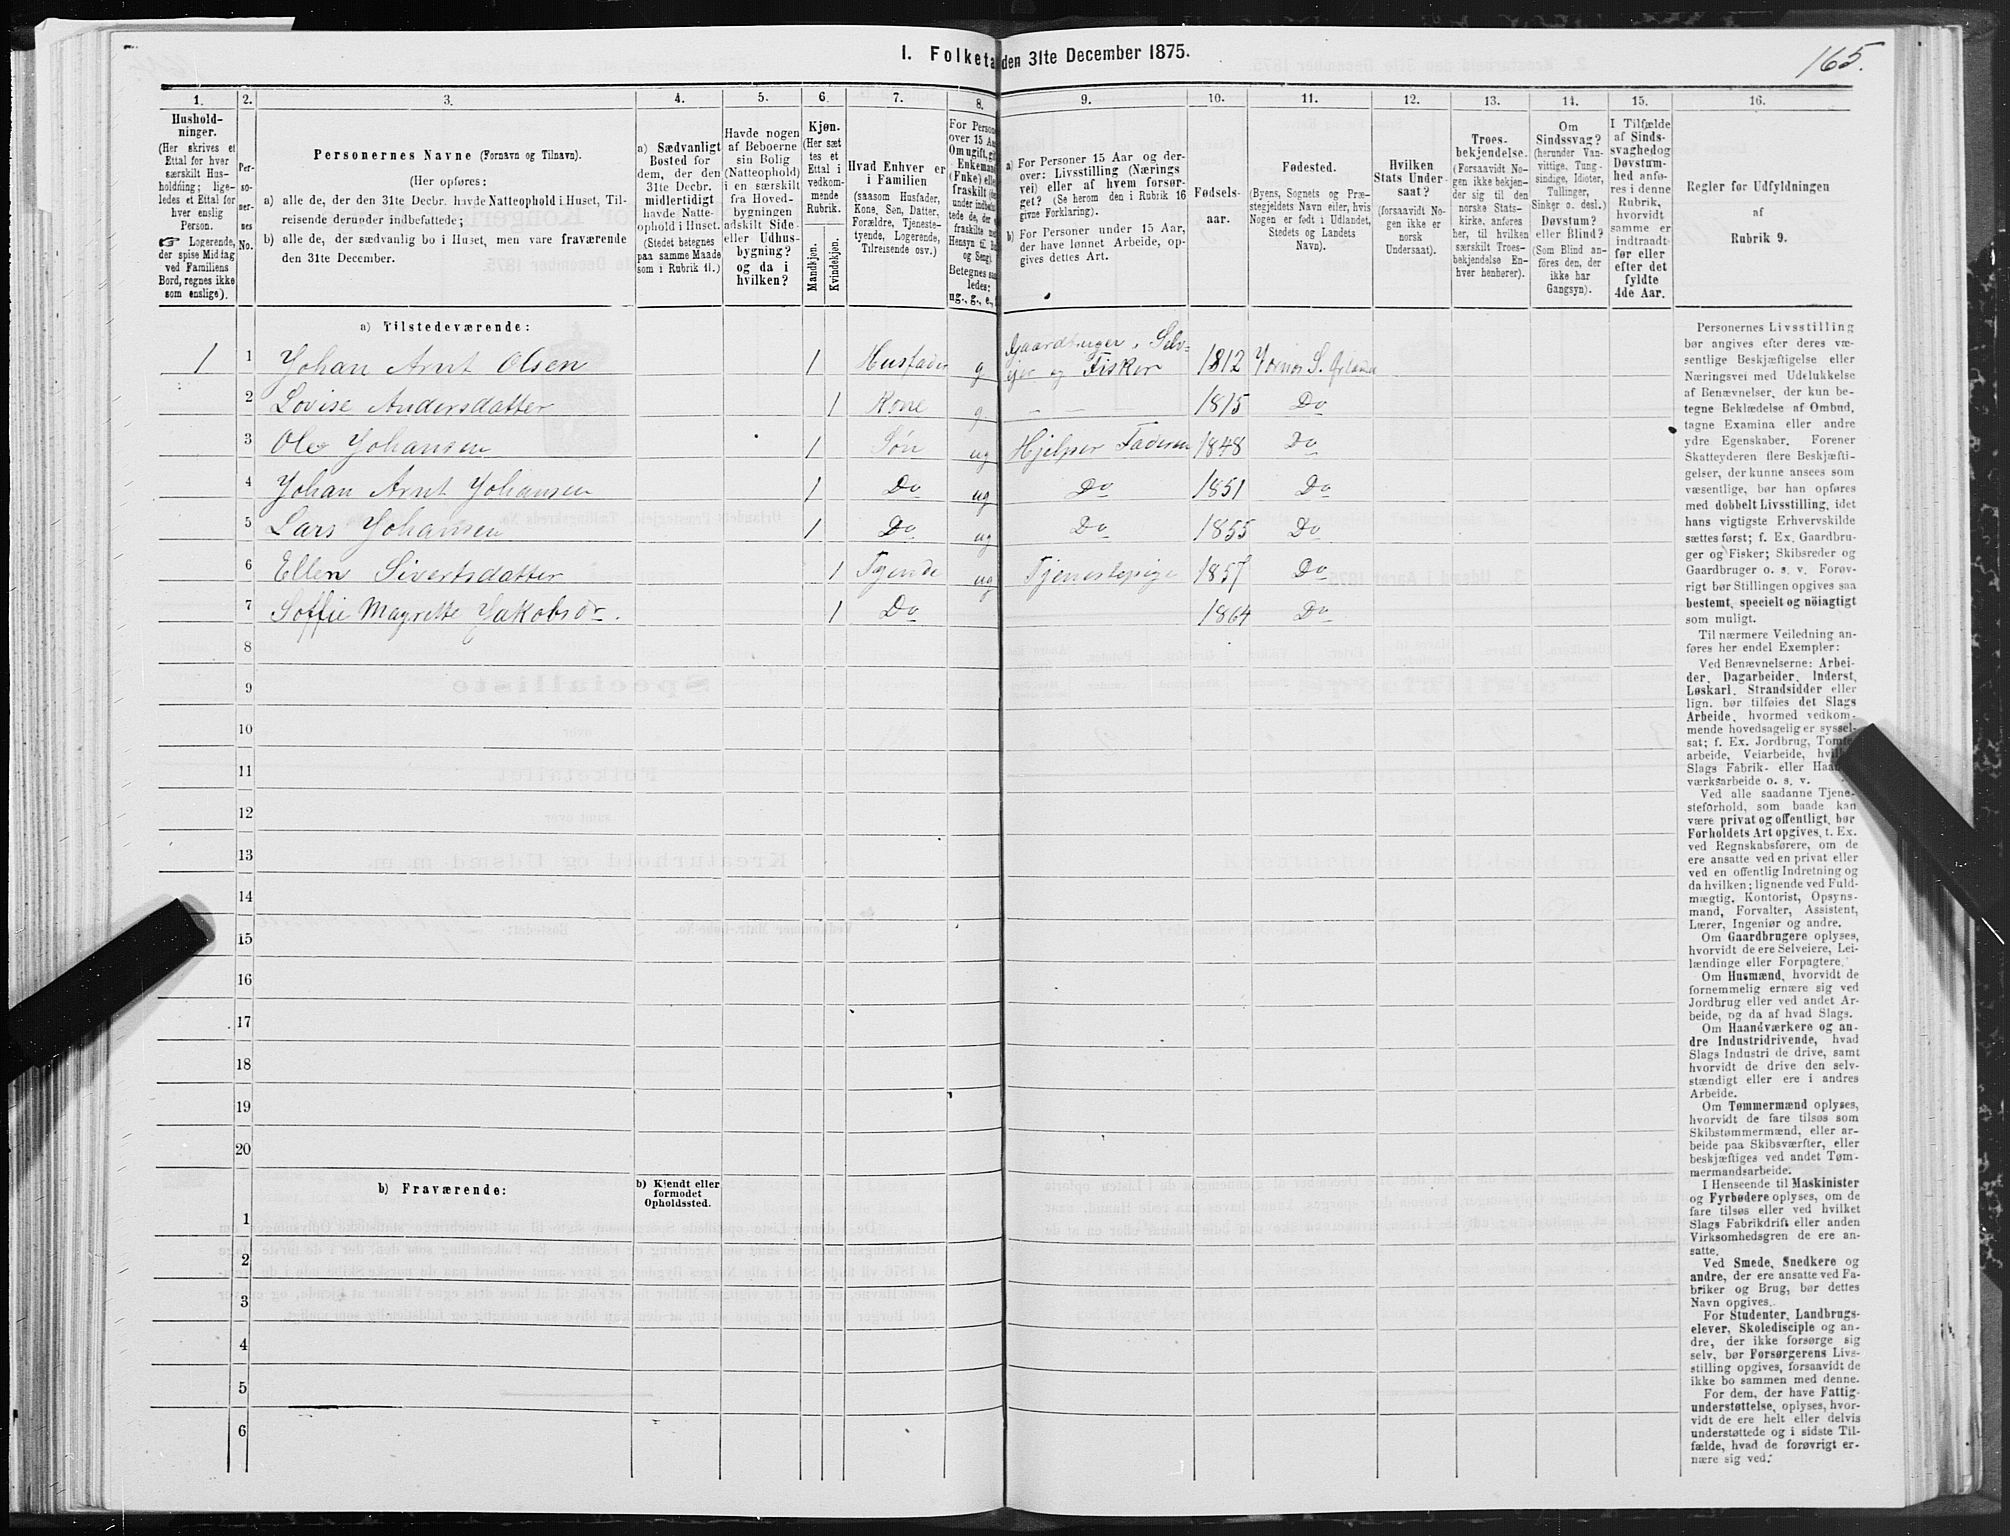 I. Folketa den 31te December 1875.
165.
1.
2.
3.
4.
5.
6.
7.
8.
9.
10.
11.
12.
13.
14.
15.
16.
Hushold-
ninger.
(Her skrives et
Ettal for hver
særskilt Hus-
holdning; lige-
ledes et Ettal for
hver enslig
Person.
☞ Logerende,
der spise Middag
ved Familiens
Bord, regnes ikke
som enslige).
Per-
so-
ner-
nes
No.
Personernes Navne (Fornavn og Tilnavn).
(Her opføres:
a) alle de, der den 31te Decbr. havde Natteophold i Huset, Til-
reisende derunder indbefattede;
b) alle de, der sædvanlig bo i Huset, men vare fraværende
den 31te December.
a) Sædvanligt
Bosted for
dem, der den
31te Decbr.
midlertidigt
havde Natte-
ophold i Huset.
(Stedet betegnes
paa samme Maade
som i Rubrik 11.)
Havde nogen
af Beboerne
sin Bolig
(Natteophold)
i en særskilt
fra Hoved-
bygningen
adskilt Side-
eller Udhus-
bygning?
og da i
hvilken?
Kjøn.
(Her sæt
tes et
Ettal i
vedkom-
mende
Rubrik.
Mandkjøn.
Kvindekjøn.
Hvad Enhver er
i Familien
(saasom Husfader,
Kone, Søn, Datter,
Forældre, Tjeneste-
tyende, Logerende,
Tilreisende osv.)
For Person
over 15 Aa
Om ugift, gi
Enkemand
(Fnke) elle
fraskilt (
under indbe
tede de, der
fraskilte
Hensyn til B
og Seng).
Betegnes saa
ledes:
ug., g., e.,
a) For Personer 15 Aar og der-
over: Livsstilling (Nærings
vei) eller af hvem forsør-
get? (Se herom den i Rubrik 16
givne Forklaring).
b) For Personer under 15 Aar,
der have lønnet Arbeide, op-
gives dettes Art.
Fødsels-
aar.
Fødested.
(Byens, Sognets og Præ-
stegjeldets Navn eller, hvis
Nogen er født i Udlandet,
Stedets og Landets
Navn).
Hvilken
Stats Under-
saat?
(forsaavidt No-
gen ikke er
norsk
Undersaat).
Troes-
bekjendelse.
(Forsaavidt No-
gen ikke bekjen-
der sig til den
norske Stats-
kirke, anføres
her, til hvilken
særskilt Troes-
bekjendelse En-
hver henhører).
Om
Sindssvag?
(herunder Van-
vittige, Tung-
sindige, Idioter,
Tullinger,
Sinker o. desl.)
Døvstum?
eller Blind?
(Som Blind an-
føres den, der
ikke har
Gangsyn).
I Tilfælde
af Sinds-
svaghed og
Døvstum-
hed anfø-
res i denne
Rubrik,
hvorvidt
samme er
indtraadt
før eller
efter det
fyldte
4de Aar.
Regler for Udfyldningen
af
Rubrik 9.
a) Tilstedeværende:
1 1 Johan Arnt Olsen 1 Husfader g Gaardbruger, Selv-
ejer og Fisker 1812
2 Lovise Andersdatter 1 Kone g — — 1815 Do
3 Ole Johansen 1 Søn ug Hjelper Faderen 1848 Do
4 Johan Arnt Johansen 1 Do ug Do 1851 Do
5 Lars Johansen 1 Do ug Do 1855 Do
6 Ellen Sivertsdatter 1 Tjende ug Tjenestepige 1857 Do
7 Soffie Magrette Jakobsdr. 1 Do 1864 Do
8
9
10
11
12
13
14
15
16
17
18
19
20
b) Fraværende:
b) Kjendt eller
formodet
Opholdssted.
1
2
3
4
5
6
Personernes Livsstilling
bør angives efter deres væ-
sentlige Beskjæftigelse eller
Næringsvei med Udelukkelse
af Benævnelser, der kun be-
tegne Beklædelse af Ombud,
tagne Examina eller andre
ydre Egenskaber. Forener
Skatteyderen flere Beskjæfti-
gelser, der kunne ansees som
væsentlige, bør han opføres
med dobbelt Livsstilling, idet
hans vigtigste Erhvervskilde
sættes først; f. Ex. Gaardbru-
ger og Fisker; Skibsreder og
Gaardbruger o. s. v. Forøv-
rigt bør Stillingen opgives saa
bestemt, specielt og nöiagtigt
som muligt.
Til nærmere Veiledning an-
føres her endel Exempler:
Ved Benævnelserne: Arbei-
der, Dagarbeider, Inderst,
Løskarl, Strandsidder eller
lign. bør tilføies det Slags
Arbeide, hvormed vedkom-
mende hovedsagelig er syssel-
sat; f. Ex. Jordbrug, Tomte-
arbeide, Veiarbeide, hvilket
Slags Fabrik- eller Haand-
værksarbeide o. s. v.
Ved alle saadanne Tjene-
steforhold, som baade kan
være privat og offentligt, bør
Forholdets Art opgives, t. Ex.
ved Regnskabsførere, om de
ere ansatte ved en privat eller
ved en offentlig Indretning og
da hvilken; lignende ved Fuld-
mægtig, Kontorist, Opsyns-
mand, Forvalter, Assistent,
Lærer, Ingeniør og andre.
Om Gaardbrugere oplyses,
hvorvidt de ere Selveiere, Lei-
lændinge eller Forpagtere.
Om Husmænd, hvorvidt de
fornemmelig ernære sig ved
Jordbrug eller ved andet Ar-
beide, og da af hvad Slags.
Om Haandværkere og an-
dre Industridrivende, hvad
Slags Industri de drive, samt
hvorvidt de drive den selv-
stændigt eller ere i andres
Arbeide.
Om Tømmermænd oplyses,
hvorvidt de fare tilsøs som
Skibstømmermænd, eller ar-
beide paa Skibsværfter, eller
beskjæftiges ved andet Tøm-
mermandsarbeide.
I Henseende til Maskinister
og Fyrbødere oplyses, om de
fare tilsøs eller ved hvilket
Slags Fabrikdrift eller anden
Virksomhedsgren de ere an-
satte.
Ved Smede, Snedkere og
andre, der ere ansatte ved Fa-
briker og Brug, bør dettes
Navn opgives.
For Studenter, Landbrugs-
elever, Skoledisciple og an-
dre, der ikke forsørge sig
selv, bør Forsørgerens Livs-
stilling opgives, forsaavidt de
ikke bo sammen med denne.
For dem, der have Fattig-
understøttelse, oplyses, hvor-
vidt de ere helt eller delvis
understøttede og i sidste Til-
fælde, hvad de forøvrigt er-
nære sig ved.